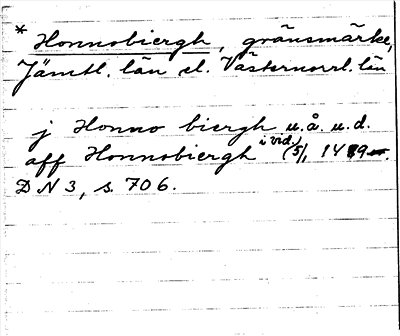 * Honnobiergh, gränsmärke,
Jämtl. län el. Västernorrl. län
j Honno biergh u.å. u.d.
aff Honnobiergh i vid. (5/1 1489).
DN 3, s. 706.